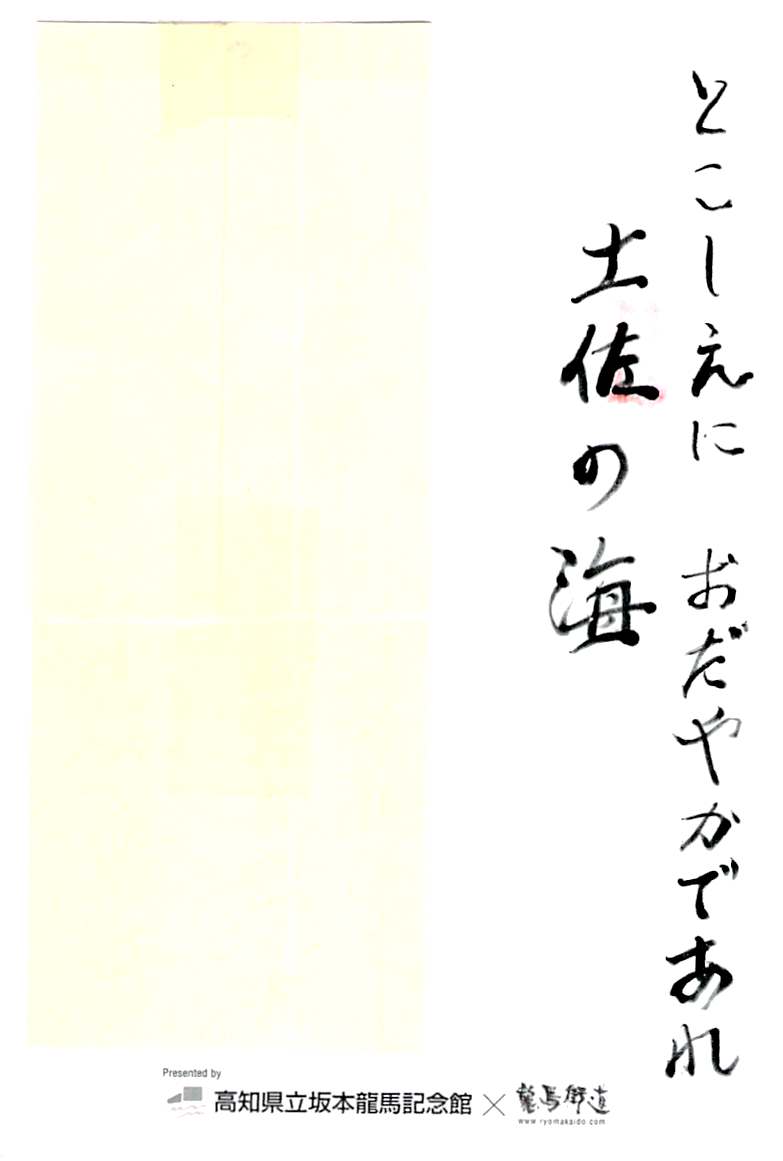 とこしえに おだやかであれ
土佐の海
Presented by
高知県立坂本龍馬記念館 × 龍馬街道
www.ryomakaido.com